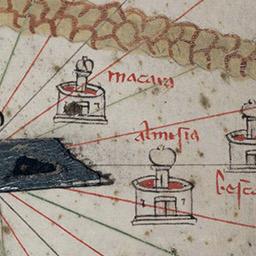 macara
almesia
besca